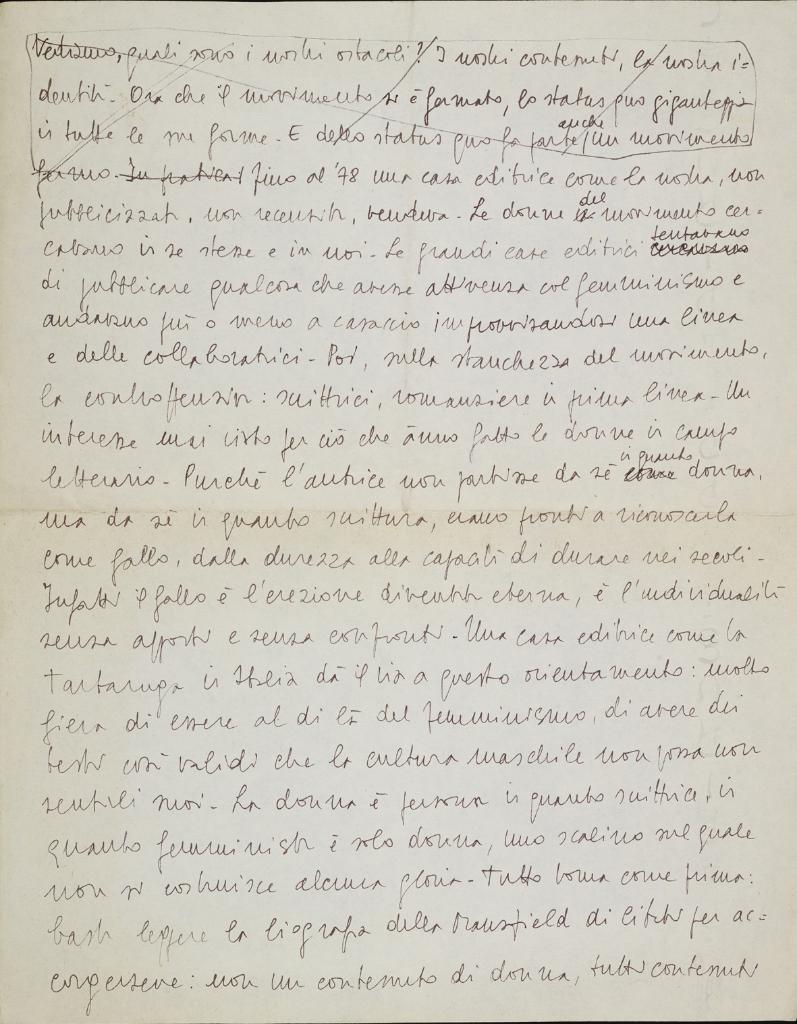 Vediamo, quali sono i nostri ostacoli? I nostri contenuti, la nostra i=
dentità. Ora che il movimento si è fermato, lo status quo giganteggia
in tutte le sue forme. E dello status quo fa parte anche un movimento
fermo. In pratica, fino al '78 una casa editrice come la nostra, non
pubblicizzata, non recensita, vendeva. Le donne del movimento cer=
cavano in se stesse e in noi. Le grandi case editrici cercavano tentavano
di pubblicare qualcosa che avesse attinenza col femminismo e
andavano più o meno a casaccio improvvisandosi una linea
e delle collaboratrici. Poi, sulla stanchezza del movimento,
la controffensiva: scrittrici, romanziere in prima linea. Un
interesse mai visto per ciò che ànno fatto le donne in campo
letterario. Purché l'autrice non partisse da sé come in quanto donna,
ma da sé in quanto scrittura, erano pronti a riconoscerla
come fallo, dalla durezza alla capacità di durare nei secoli.
Infatti il fallo è l'erezione diventata eterna, è l'individualità
senza apporti e senza confronti. Una casa editrice come la
Tartaruga in Italia dà il via a questo orientamento: molto
fiera di essere al di là del femminismo, di avere dei
testi così validi che la cultura maschile non possa non
sentirli suoi. La donna è persona in quanto scrittrice, in
quanto femminista è solo donna, uno scalino sul quale
non si costruisce alcuna gloria. Tutto torna come prima:
basta leggere la biografia della Mansfield di Citati per ac=
corgersene: non un contenuto di donna, tutti contenuti